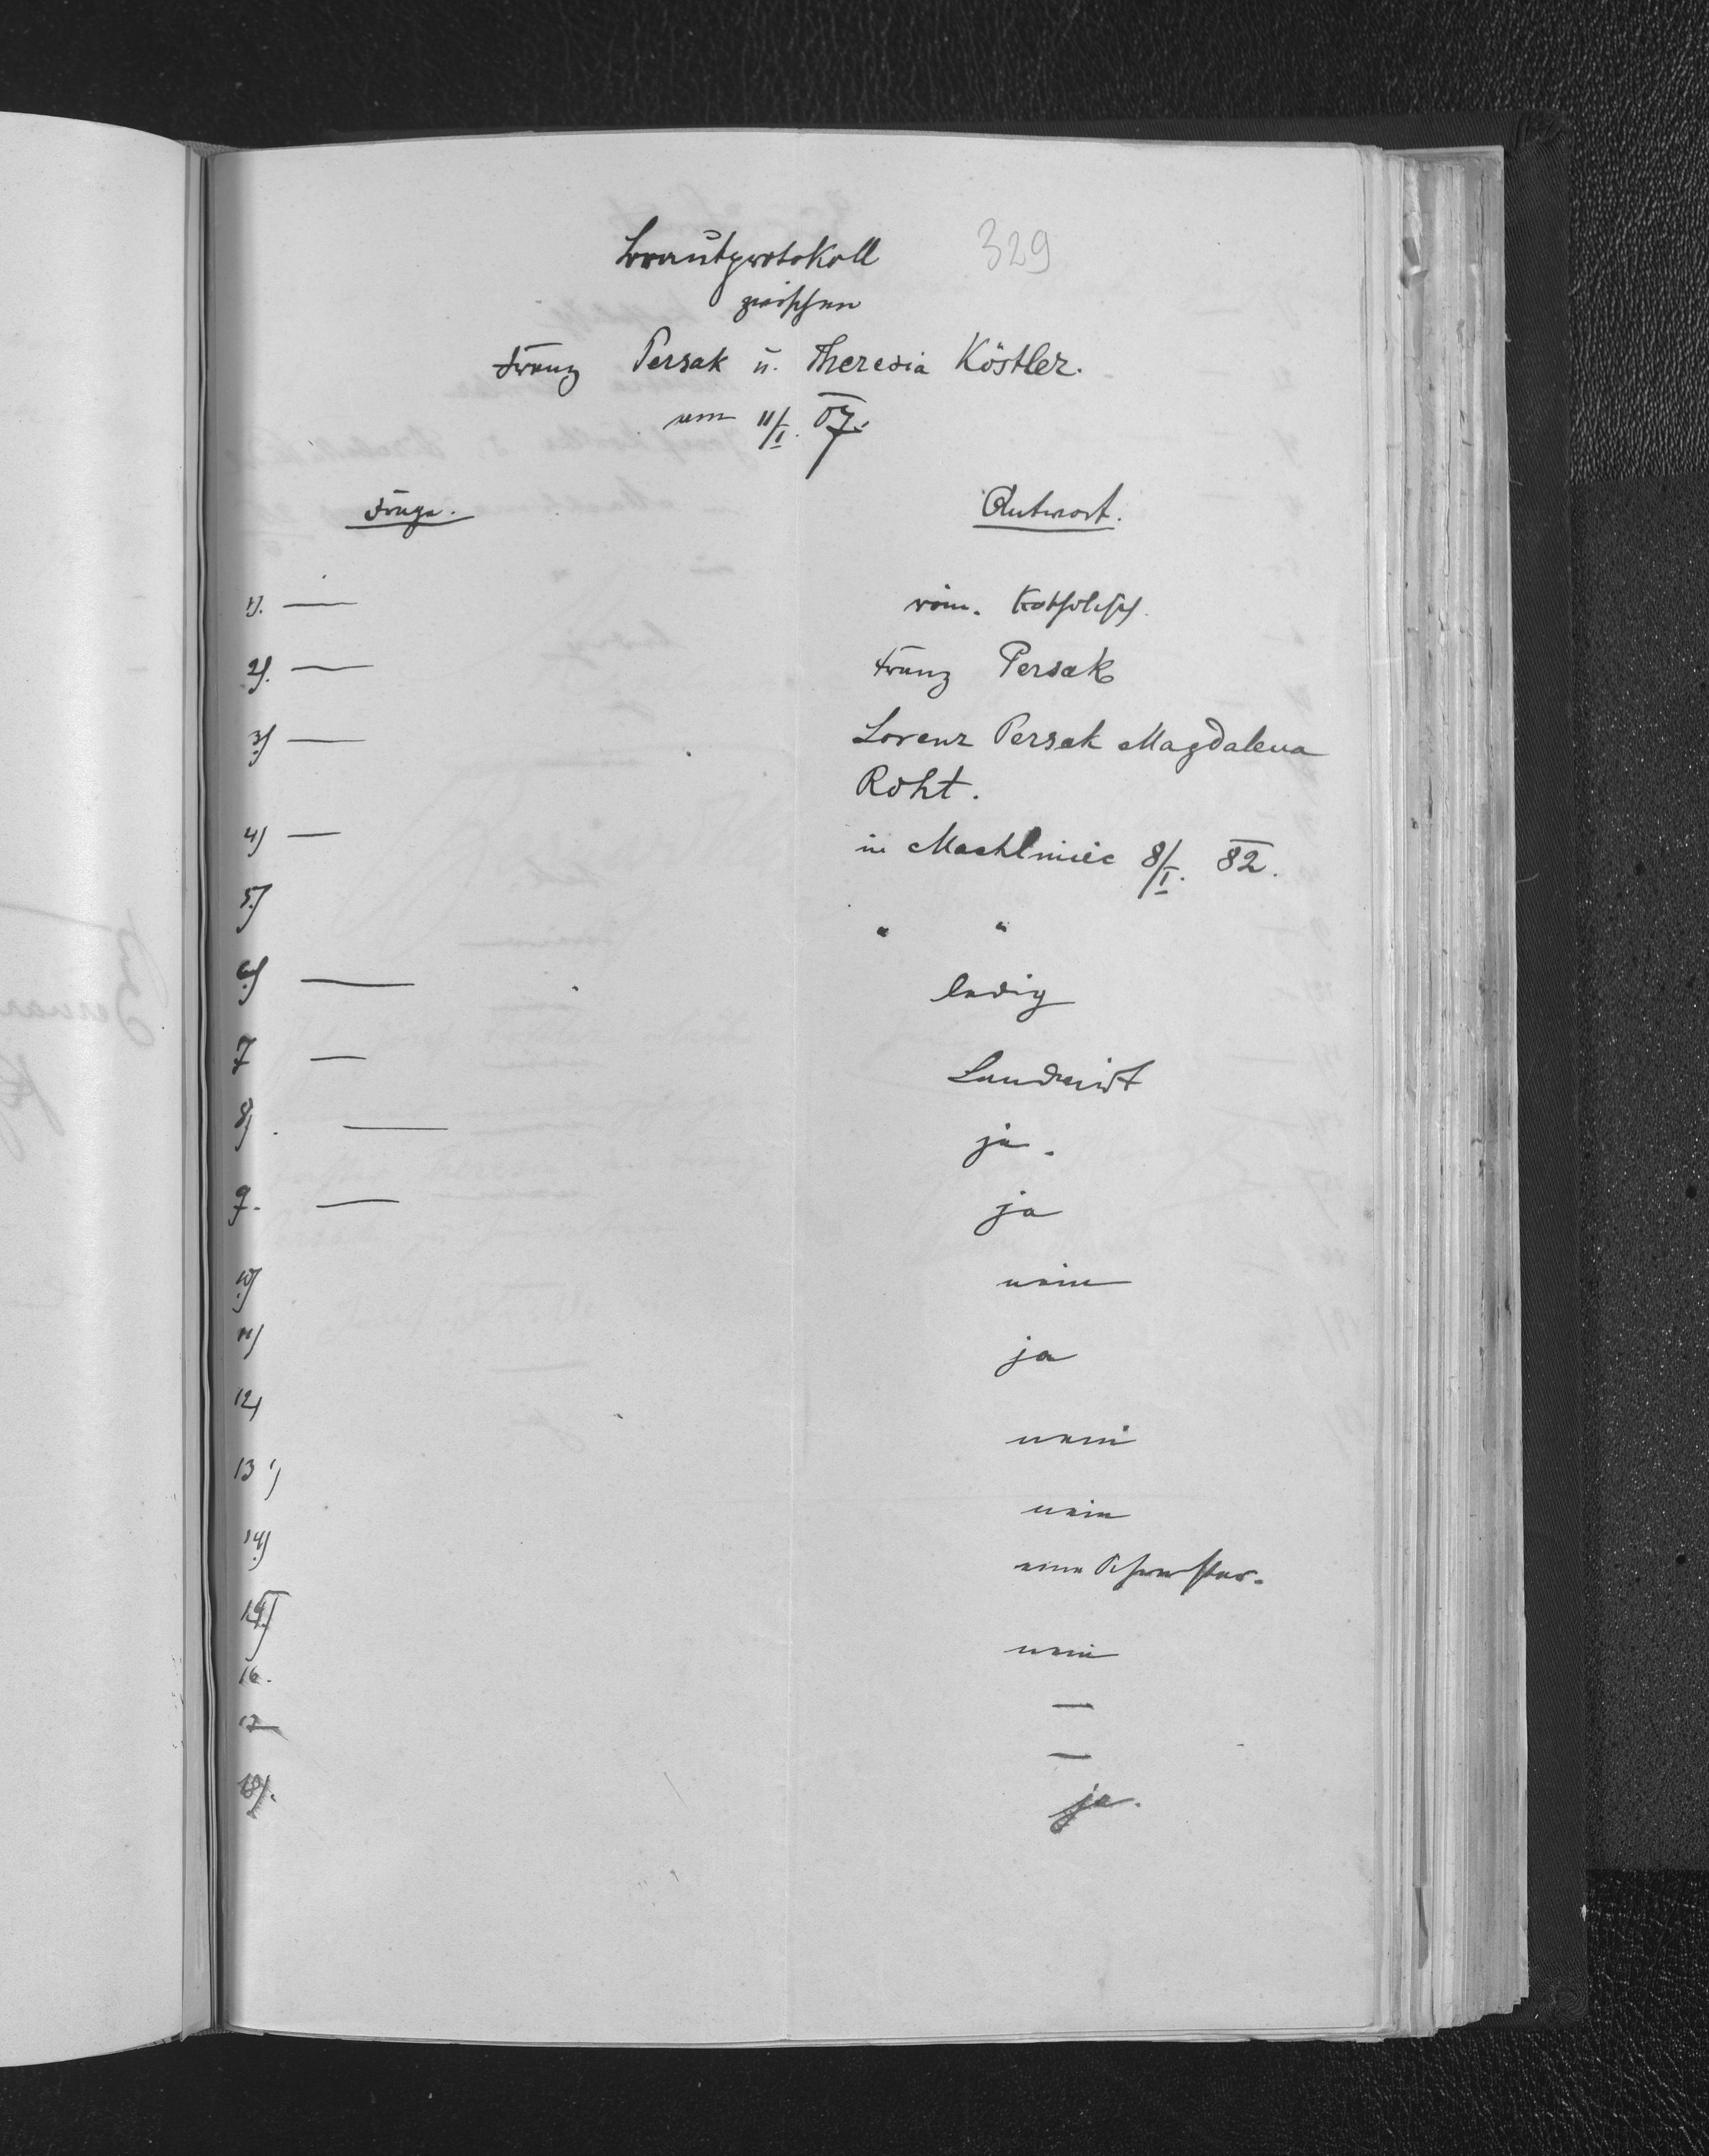 Brautprotokoll 329
zwischen
Franz Persak u. Theresia Köstler.
am 11/I. 07.
Frage. Antwort.
1). — röm. Katholisch.
2). — Franz Persak
3.) — Lorenz Persak Magdalena
Roht.
4) — in Machliniec 8/I. 82.
5.) " "
6.) — ledig
7 — Landwirt
8). — ja.
9. — ja
10.) nein
11) ja
12) nein
13.) nein
14.) eine Schwester.
15.) nein
16. —
17 —
18). ja.